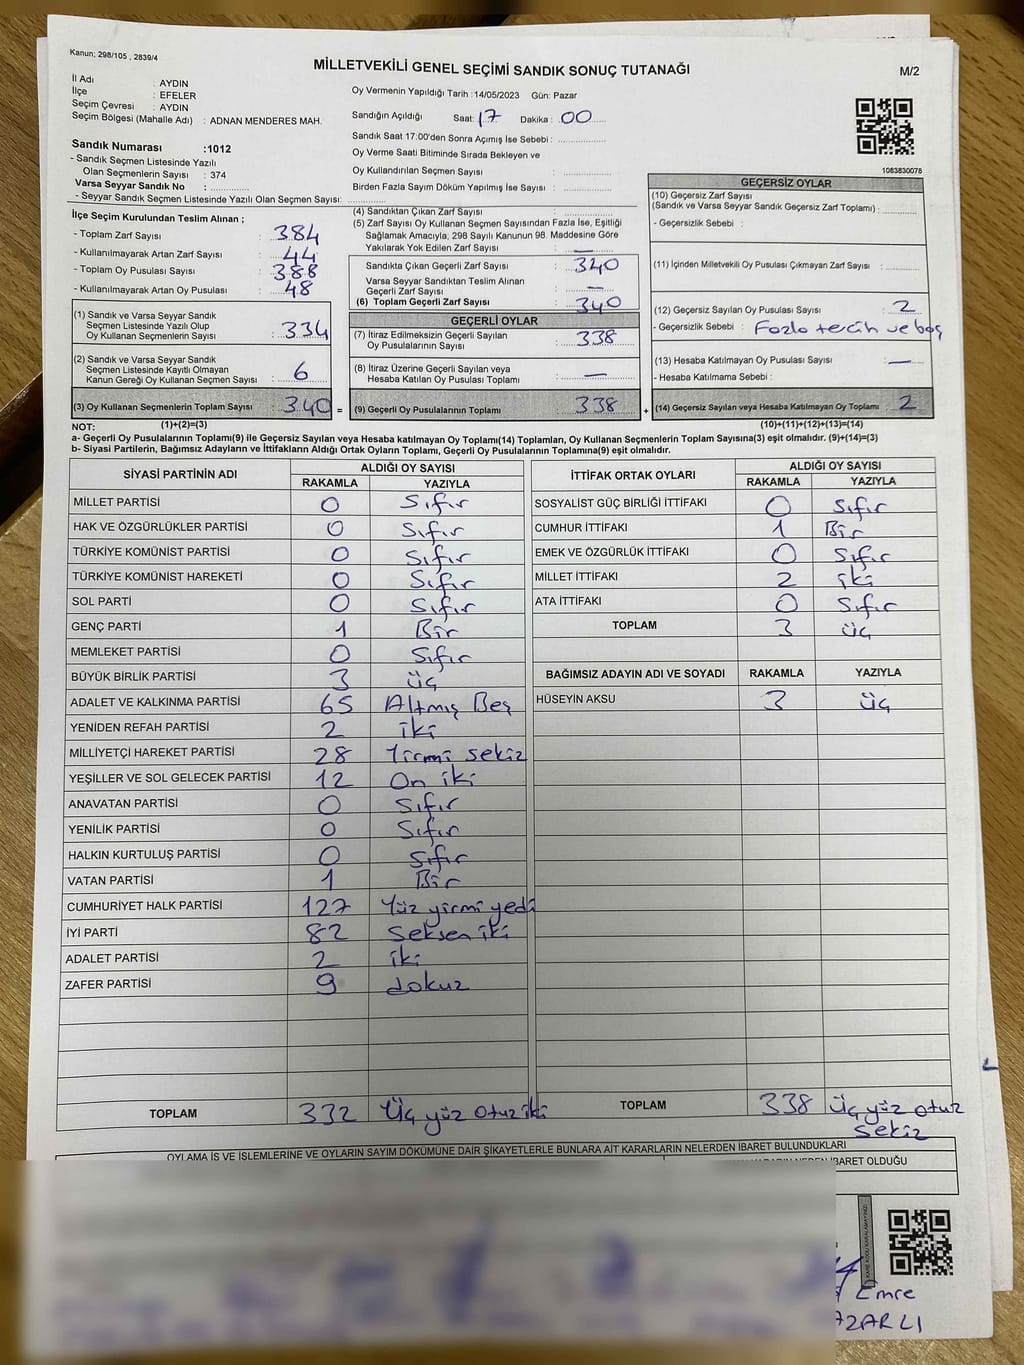 Kanun; 298/105 , 2839/4
MİLLETVEKİLİ GENEL SEÇİMİ SANDIK SONUÇ TUTANAĞI
M/2
İl Adı : AYDIN
İlçe : EFELER
Seçim Çevresi : AYDIN
Seçim Bölgesi (Mahalle Adı) : ADNAN MENDERES MAH.
Sandık Numarası :1012
- Sandık Seçmen Listesinde Yazılı
Olan Seçmenlerin Sayısı : 374
Varsa Seyyar Sandık No :
- Seyyar Sandık Seçmen Listesinde Yazılı Olan Seçmen Sayısı:
Oy Vermenin Yapıldığı Tarih :14/05/2023 Gün: Pazar
Sandığın Açıldığı Saat: 17 Dakika : 00
Sandık Saat 17:00'den Sonra Açımış İse Sebebi :
Oy Verme Saati Bitiminde Sırada Bekleyen ve
Oy Kullandırılan Seçmen Sayısı :
Birden Fazla Sayım Döküm Yapılmış İse Sayısı :
1083830078
İlçe Seçim Kurulundan Teslim Alınan ;
- Toplam Zarf Sayısı : 384
- Kullanılmayarak Artan Zarf Sayısı : 44
- Toplam Oy Pusulası Sayısı : 388
- Kullanılmayarak Artan Oy Pusulası : 48
(1) Sandık ve Varsa Seyyar Sandık
Seçmen Listesinde Yazılı Olup
Oy Kullanan Seçmenlerin Sayısı : 334
(2) Sandık ve Varsa Seyyar Sandık
Seçmen Listesinde Kayıtlı Olmayan
Kanun Gereği Oy Kullanan Seçmen Sayısı : 6
(3) Oy Kullanan Seçmenlerin Toplam Sayısı : 340 =
(4) Sandıktan Çıkan Zarf Sayısı :
(5) Zarf Sayısı Oy Kullanan Seçmen Sayısından Fazla İse, Eşitliği
Sağlamak Amacıyla; 298 Sayılı Kanunun 98. Maddesine Göre
Yakılarak Yok Edilen Zarf Sayısı : —
Sandıkta Çıkan Geçerli Zarf Sayısı : 340
Varsa Seyyar Sandıktan Teslim Alınan
Geçerli Zarf Sayısı : —
(6) Toplam Geçerli Zarf Sayısı : 340
GEÇERLİ OYLAR
(7) İtiraz Edilmeksizin Geçerli Sayılan
Oy Pusulalarının Sayısı : 338
(8) İtiraz Üzerine Geçerli Sayılan veya
Hesaba Katılan Oy Pusulası Toplamı : —
(9) Geçerli Oy Pusulalarının Toplamı : 338 +
GEÇERSİZ OYLAR
(10) Geçersiz Zarf Sayısı
(Sandık ve Varsa Seyyar Sandık Geçersiz Zarf Toplamı) :
- Geçersizlik Sebebi :
(11) İçinden Milletvekili Oy Pusulası Çıkmayan Zarf Sayısı :
(12) Geçersiz Sayılan Oy Pusulası Sayısı : 2
- Geçersizlik Sebebi : Fazla tercih ve boş
(13) Hesaba Katılmayan Oy Pusulası Sayısı : —
- Hesaba Katılmama Sebebi :
(14) Geçersiz Sayılan veya Hesaba Katılmayan Oy Toplamı : 2
NOT: (1)+(2)=(3) (10)+(11)+(12)+(13)=(14)
a- Geçerli Oy Pusulalarının Toplamı(9) ile Geçersiz Sayılan veya Hesaba katılmayan Oy Toplamı(14) Toplamları, Oy Kullanan Seçmenlerin Toplam Sayısına(3) eşit olmalıdır. (9)+(14)=(3)
b- Siyasi Partilerin, Bağımsız Adayların ve İttifakların Aldığı Ortak Oyların Toplamı, Geçerli Oy Pusulalarının Toplamına(9) eşit olmalıdır.
SİYASİ PARTİNİN ADI ALDIĞI OY SAYISI
RAKAMLA YAZIYLA
MİLLET PARTİSİ 0 Sıfır
HAK VE ÖZGÜRLÜKLER PARTİSİ 0 Sıfır
TÜRKİYE KOMÜNİST PARTİSİ 0 Sıfır
TÜRKİYE KOMÜNİST HAREKETİ 0 Sıfır
SOL PARTİ 0 Sıfır
GENÇ PARTİ 1 Bir
MEMLEKET PARTİSİ 0 Sıfır
BÜYÜK BİRLİK PARTİSİ 3 üç
ADALET VE KALKINMA PARTİSİ 65 Altmış Beş
YENİDEN REFAH PARTİSİ 2 iki
MİLLİYETÇİ HAREKET PARTİSİ 28 Yirmi sekiz
YEŞİLLER VE SOL GELECEK PARTİSİ 12 On iki
ANAVATAN PARTİSİ 0 Sıfır
YENİLİK PARTİSİ 0 Sıfır
HALKIN KURTULUŞ PARTİSİ 0 Sıfır
VATAN PARTİSİ 1 Bir
CUMHURİYET HALK PARTİSİ 127 Yüz yirmi yedi
İYİ PARTİ 82 Seksen iki
ADALET PARTİSİ 2 iki
ZAFER PARTİSİ 9 dokuz
TOPLAM 332 Üç yüz otuz iki
İTTİFAK ORTAK OYLARI ALDIĞI OY SAYISI
RAKAMLA YAZIYLA
SOSYALİST GÜÇ BİRLİĞİ İTTİFAKI 0 Sıfır
CUMHUR İTTİFAKI 1 Bir
EMEK VE ÖZGÜRLÜK İTTİFAKI 0 Sıfır
MİLLET İTTİFAKI 2 iki
ATA İTTİFAKI 0 Sıfır
TOPLAM 3 üç
BAĞIMSIZ ADAYIN ADI VE SOYADI RAKAMLA YAZIYLA
HÜSEYİN AKSU 3 üç
TOPLAM 338 Üç yüz otuz
sekiz
OYLAMA İŞ VE İŞLEMLERİNE VE OYLARIN SAYIM DÖKÜMÜNE DAİR ŞİKAYETLERLE BUNLARA AİT KARARLARIN NELERDEN İBARET BULUNDUKLARI
İBARET OLDUĞU
Emre